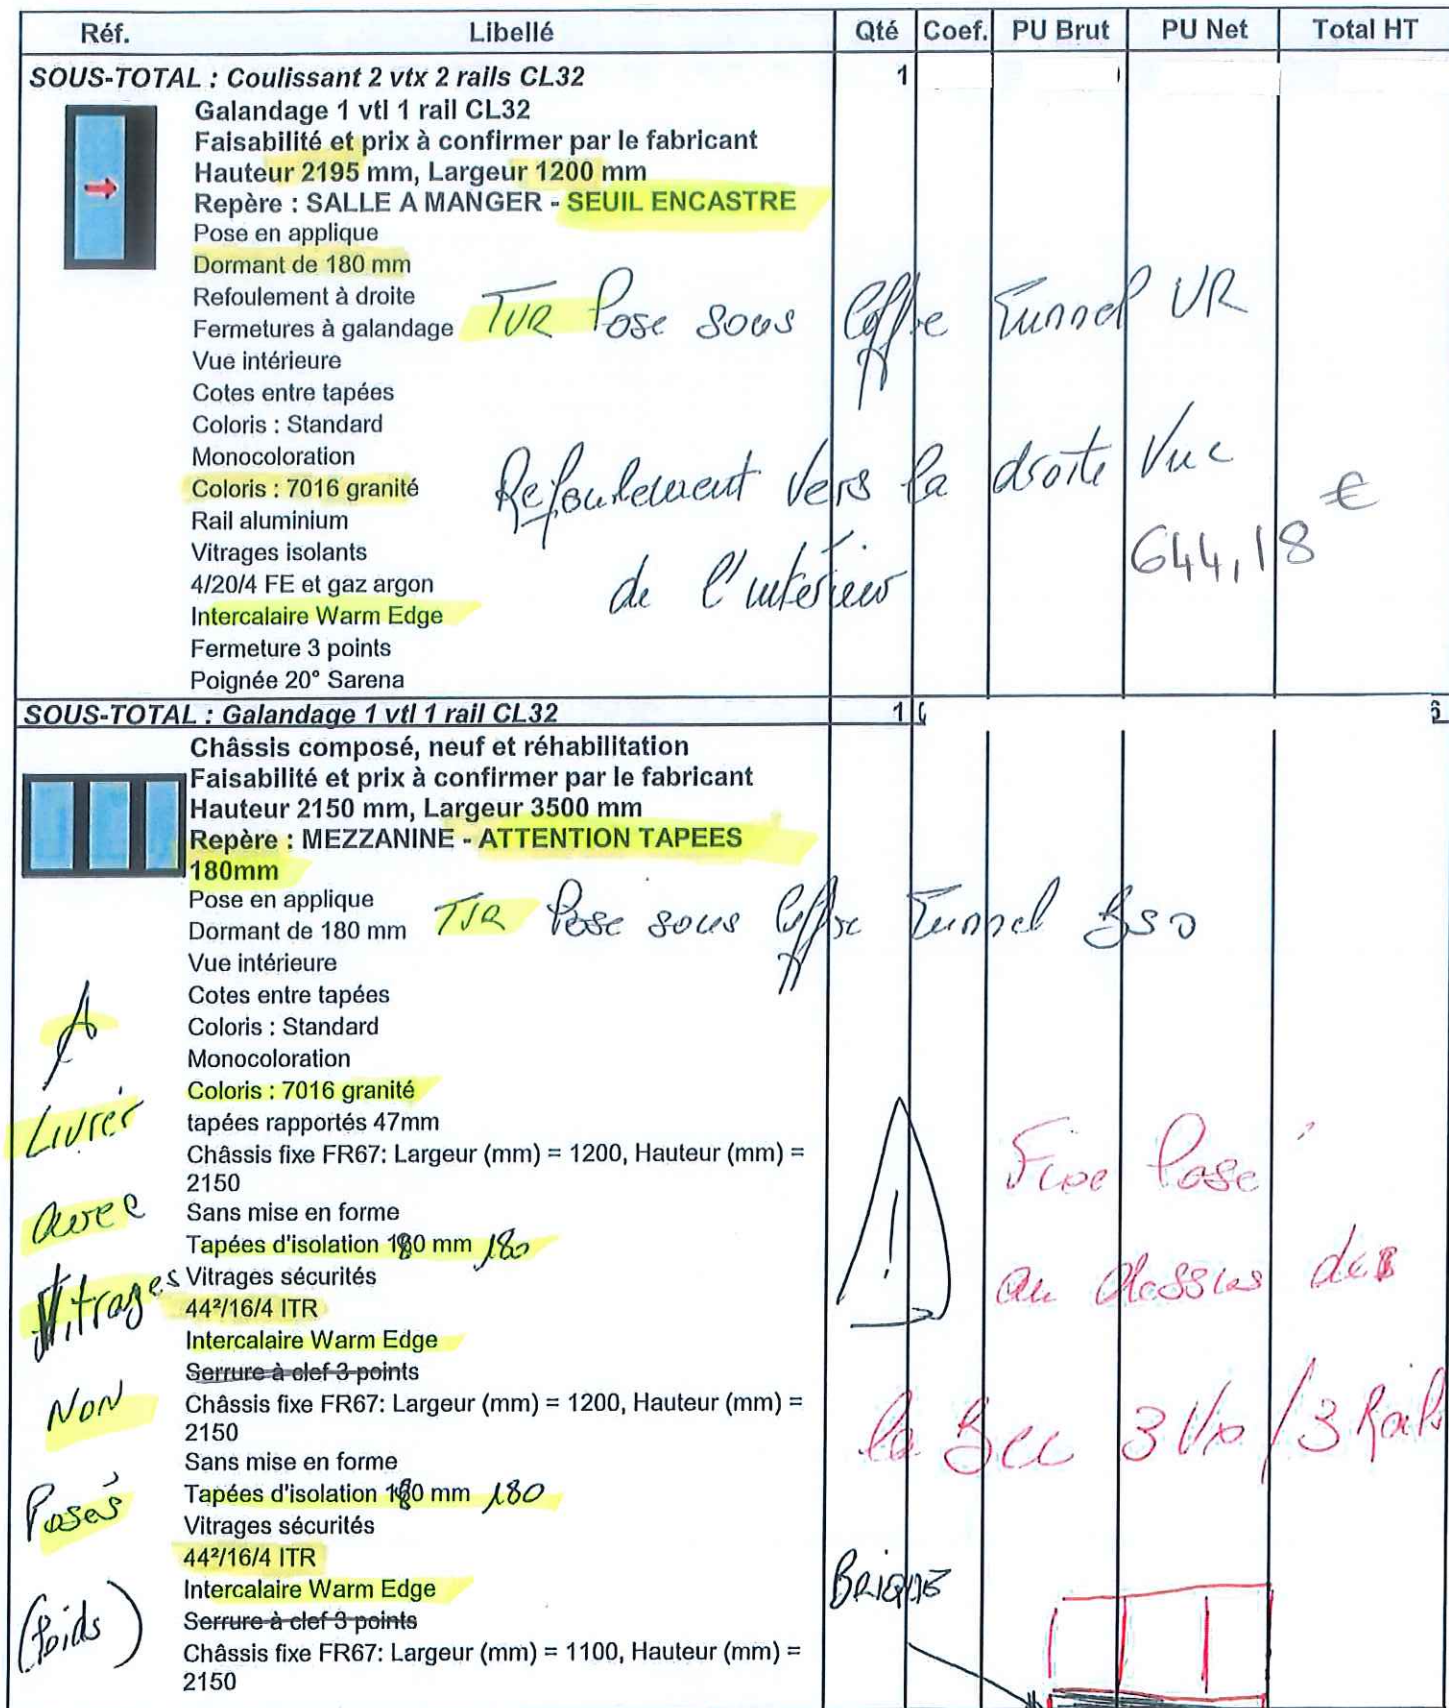 Réf. Libellé Qté Coef. PU Brut PU Net Total HT
SOUS-TOTAL : Coulissant 2 vtx 2 rails CL32 1
Galandage 1 vtl 1 rail CL32
Faisabilité et prix à confirmer par le fabricant
Hauteur 2195 mm, Largeur 1200 mm
Repère : SALLE A MANGER - SEUIL ENCASTRE
Pose en applique
Dormant de 180 mm
Refoulement à droite
Fermetures à galandage
TVR Pose sous Coffre Tunnel VR
Vue intérieure
Cotes entre tapées
Coloris : Standard
Monocoloration
Coloris : 7016 granité
Refoulement vers la droite Vue
de l'intérieur
644,18 €
Rail aluminium
Vitrages isolants
4/20/4 FE et gaz argon
Intercalaire Warm Edge
Fermeture 3 points
Poignée 20° Sarena
SOUS-TOTAL : Galandage 1 vtl 1 rail CL32 1
Châssis composé, neuf et réhabilitation
Faisabilité et prix à confirmer par le fabricant
Hauteur 2150 mm, Largeur 3500 mm
Repère : MEZZANINE - ATTENTION TAPEES
180mm
Pose en applique
Dormant de 180 mm
Pose sous Coffre Tunnel BSO
Vue intérieure
Cotes entre tapées
Coloris : Standard
Monocoloration
Coloris : 7016 granité
tapées rapportés 47mm
Châssis fixe FR67: Largeur (mm) = 1200, Hauteur (mm) =
2150
Sans mise en forme
Tapées d'isolation 180 mm 180
Vitrages sécurités
44²/16/4 ITR
Intercalaire Warm Edge
Serrure à clef 3 points
Châssis fixe FR67: Largeur (mm) = 1200, Hauteur (mm) =
2150
Sans mise en forme
Tapées d'isolation 180 mm 180
Vitrages sécurités
44²/16/4 ITR
Intercalaire Warm Edge
Serrure à clef 3 points
Châssis fixe FR67: Largeur (mm) = 1100, Hauteur (mm) =
2150
A
Livrer
avec
Vitrages
NON
Posés
(Poids)
!
Fixe Posé
au dessus de
la Bcc 3 Vx / 3 Rails
BRIQUE